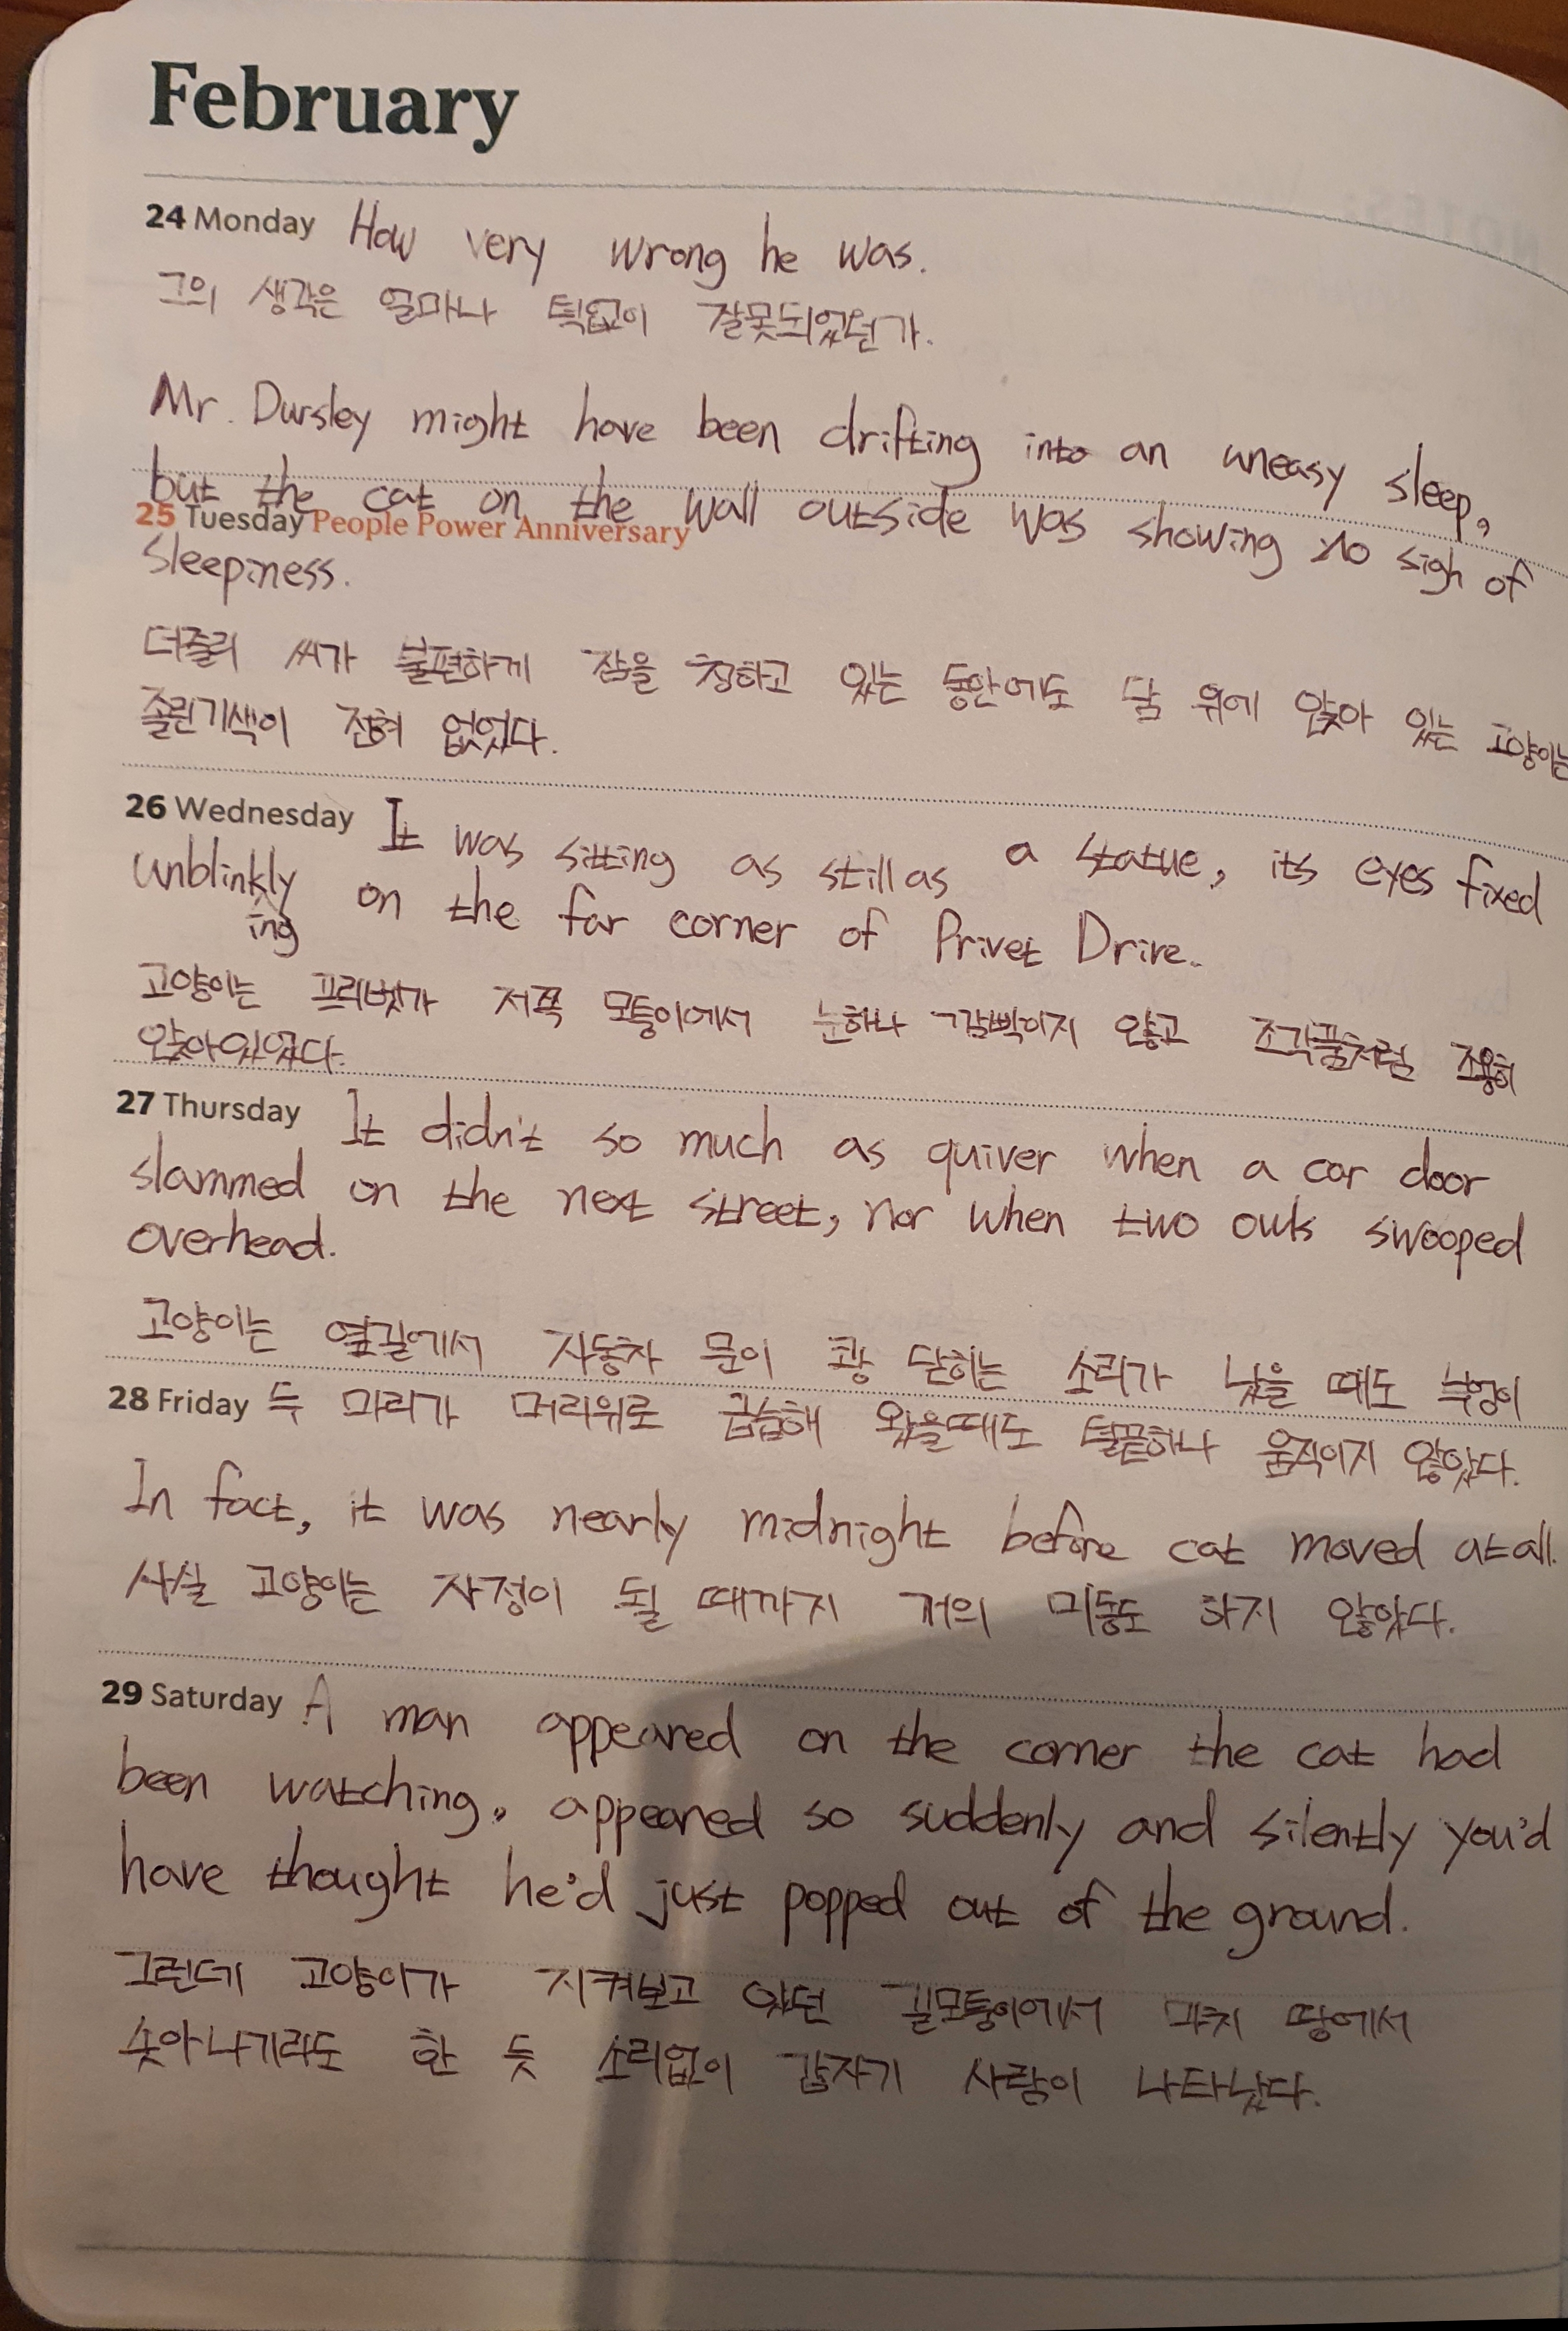 February
24 Monday How very wrong he was.
그의 생각은 얼마나 턱없이 잘못되었던가.
Mr. Dursley might have been drifting into an uneasy sleep,
but the cat on the wall outside was showing no sigh of
25 Tuesday People Power Anniversary
sleepiness.
더즐리 씨가 불편하게 잠을 청하고 있는 동안에도 담 위에 앉아 있는 고양이는
졸린기색이 전혀 없었다.
26 Wednesday It was sitting as still as a statue, its eyes fixed
unblinkly on the far corner of Privet Drive.
ing
고양이는 프리벳가 저쪽 모퉁이에서 눈하나 깜빡이지 않고 조각품처럼 조용히
앉아있었다.
27 Thursday It didn't so much as quiver when a car door
slammed on the next street, nor when two owls swooped
overhead.
고양이는 옆길에서 자동차 문이 쾅 닫히는 소리가 났을 때도 부엉이
28 Friday 두 마리가 머리위로 급습해 왔을때도 털끝하나 움직이지 않았다.
In fact, it was nearly midnight before cat moved at all.
사실 고양이는 자정이 될 때까지 거의 미동도 하지 않았다.
29 Saturday A man appeared on the corner the cat had
been watching, appeared so suddenly and silently you'd
have thought he'd just popped out of the ground.
그런데 고양이가 지켜보고 있던 길모퉁이에서 마치 땅에서
솟아나기라도 한 듯 소리없이 갑자기 사람이 나타났다.